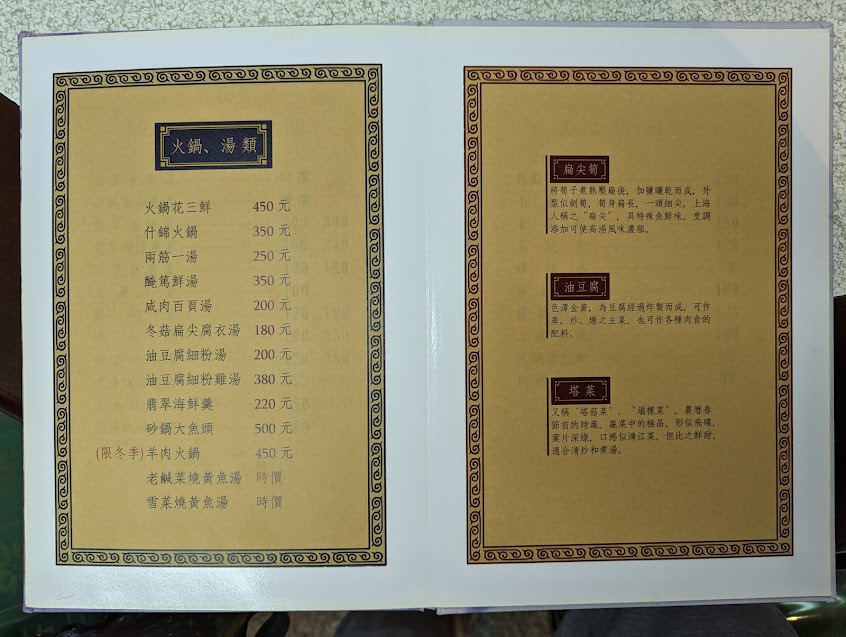 火鍋、湯類
火鍋花三鮮 450元
什錦火鍋 350元
兩筋一湯 250元
醃篤鮮湯 350元
咸肉百頁湯 200元
冬菇扁尖腐衣湯 180元
油豆腐細粉湯 200元
油豆腐細粉雞湯 380元
翡翠海鮮羹 220元
砂鍋大魚頭 500元
(限冬季)羊肉火鍋 450元
老鹹菜燒黃魚湯 時價
雪菜燒黃魚湯 時價
扁尖筍
將筍子煮熟壓扁後,加鹽曬乾而成,外
型似劍筍,筍身扁長,一頭細尖,上海
人稱之〝扁尖〞,具特殊魚鮮味,烹調
添加可使高湯風味濃郁。
油豆腐
色澤金黃,為豆腐經過炸製而成,可作
蒸、炒、燉之主菜,也可作各種肉食的
配料。
塔菜
又稱〝塔菇菜〞、〝塌棵菜〞、農曆春
節前的時蔬,蔬菜中的極品,形似飛碟,
葉片深綠,口感似清江菜,但比之鮮甜,
適合清炒和煮湯。